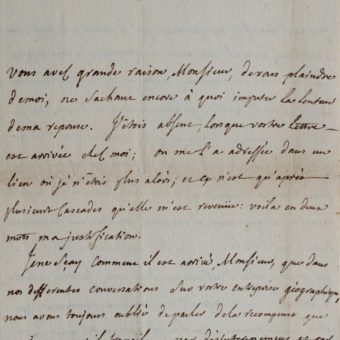 Vous avés grande raison, Monsieur, de vous plaindre
de moi, ne sachant encore à quoi imputer la lenteur
de ma reponse. J'étois absent, lorsque votre lettre
est arrivée chés moi; on me l'a adressée dans un
lieu où je n'étois plus alors; et ce n'est qu'après
plusieurs Cascades qu'elle m'est revenüe: voila en deux
mots ma justification.
Je ne sçay comment il est arrivé, Monsieur, que dans
nos differentes conversations sur votre entreprise géographique,
nous avons toujours oublié de parler de la recompense que